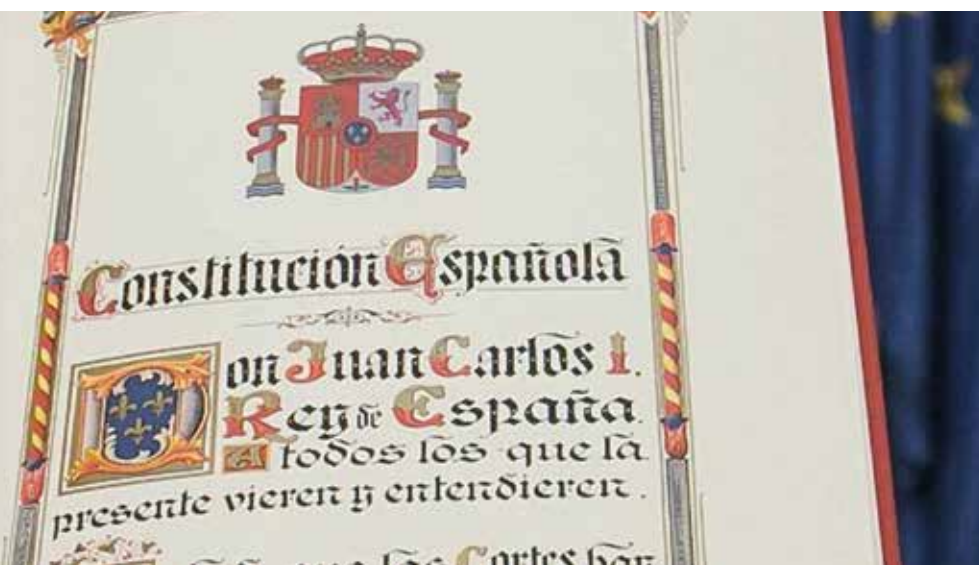 Constitución Española
Don Juan Carlos I.
Rey de España.
A todos los que la
presente vieren y entendieren.
las Cortes han